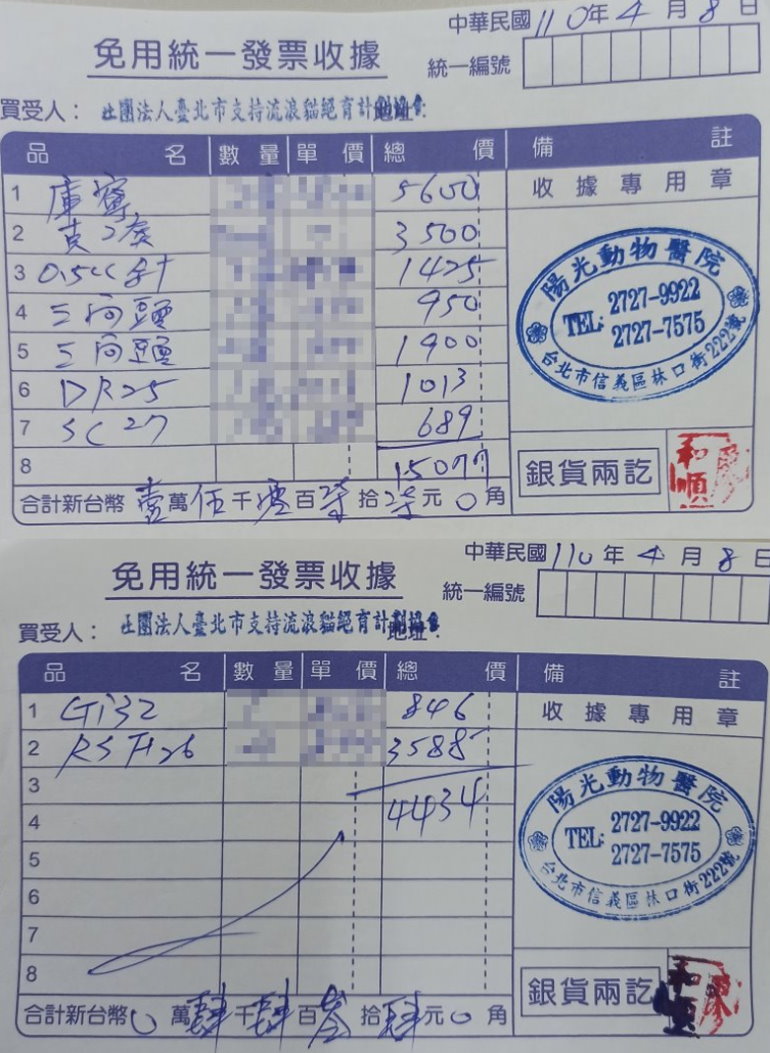 中華民國110年4月8日
免用統一發票收據
統一編號
買受人： 社團法人臺北市支持流浪貓絕育計劃協會
品名 數量 單價 總價 備註
1 5600 收據專用章
2 3500
3 0.5cc針 1425
4 三向頭 950
5 三向頭 1900
6 DR25 1013
7 SC27 689
8 15077
陽光動物醫院
TEL: 2727-9922
2727-7575
台北市信義區林口街222號
銀貨兩訖
和順
合計新台幣 壹萬伍千零百柒拾柒元0角
中華民國110年4月8日
免用統一發票收據
統一編號
買受人： 社團法人臺北市支持流浪貓絕育計劃協會
品名 數量 單價 總價 備註
1 Gi32 846 收據專用章
2 RSF26 3588
3
4 4434
5
6
7
8
陽光動物醫院
TEL: 2727-9922
2727-7575
台北市信義區林口街222號
銀貨兩訖
和順
合計新台幣0萬肆千肆百參拾肆元0角